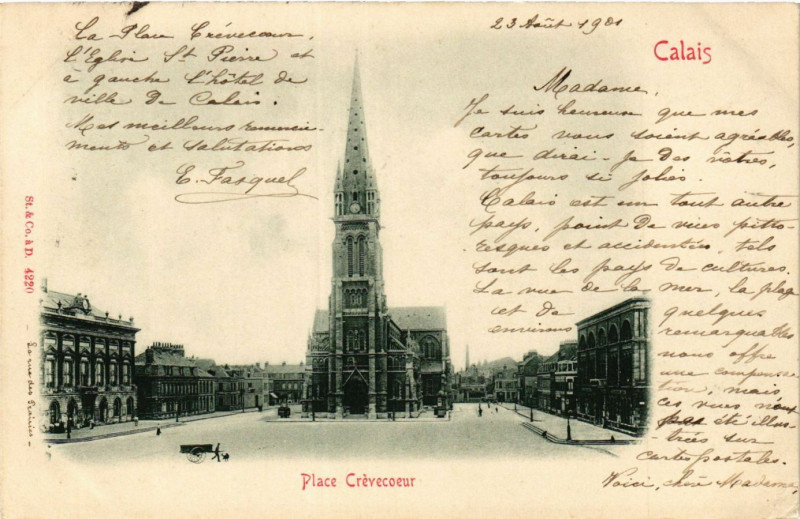 23 Août 1901
Calais
La Place Crèvecoeur,
l'Eglise St Pierre et
à gauche l'hôtel de
ville de Calais.
Mes meilleurs remercie-
ments et salutations
E. Fasquel
Madame,
Je suis heureuse que mes
cartes vous soient agréables,
que dirai-je des vôtres,
toujours si jolies.
Calais est un tout autre
pays, point de vues pitto-
resques et accidentées, tels
sont les pays de cultures.
La vue de la mer, la plage
et de quelques
environs remarquables
nous offre
une compensa-
tion, mais
ces vues n'ont
pas été illus-
trées sur
cartes postales.
Voici, chère Madame,
St. & Co. à D. 4220
La rue des Prairies
Place Crèvecoeur